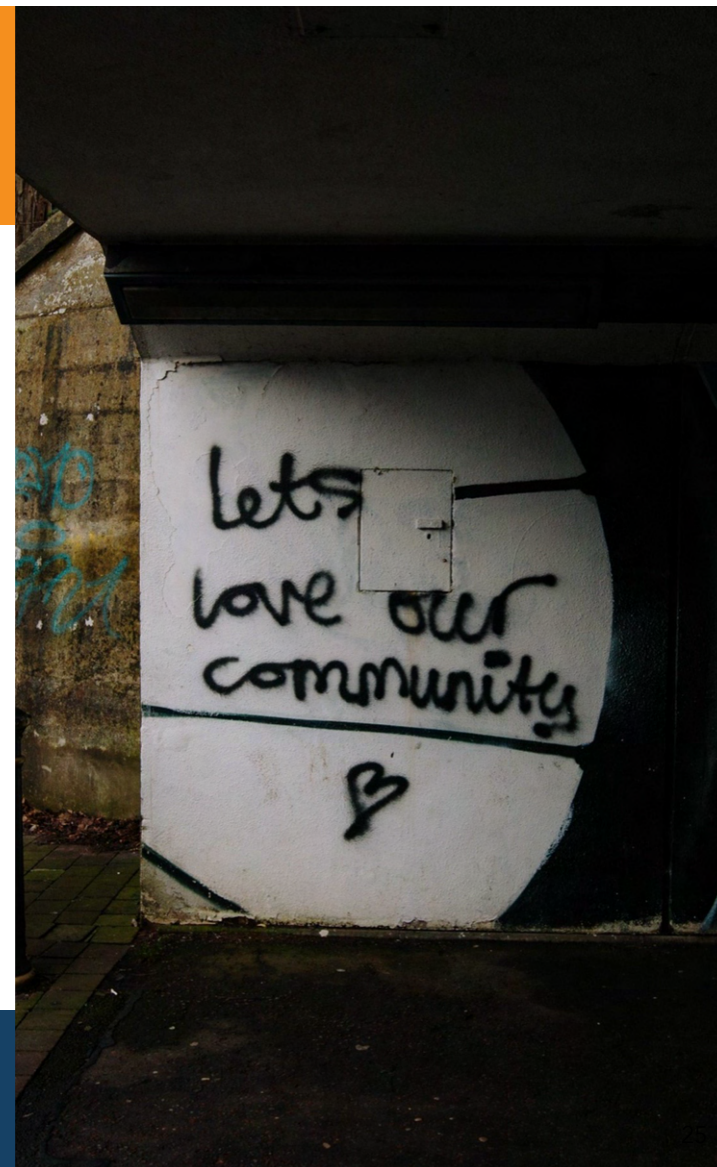 lets
love our
community
25